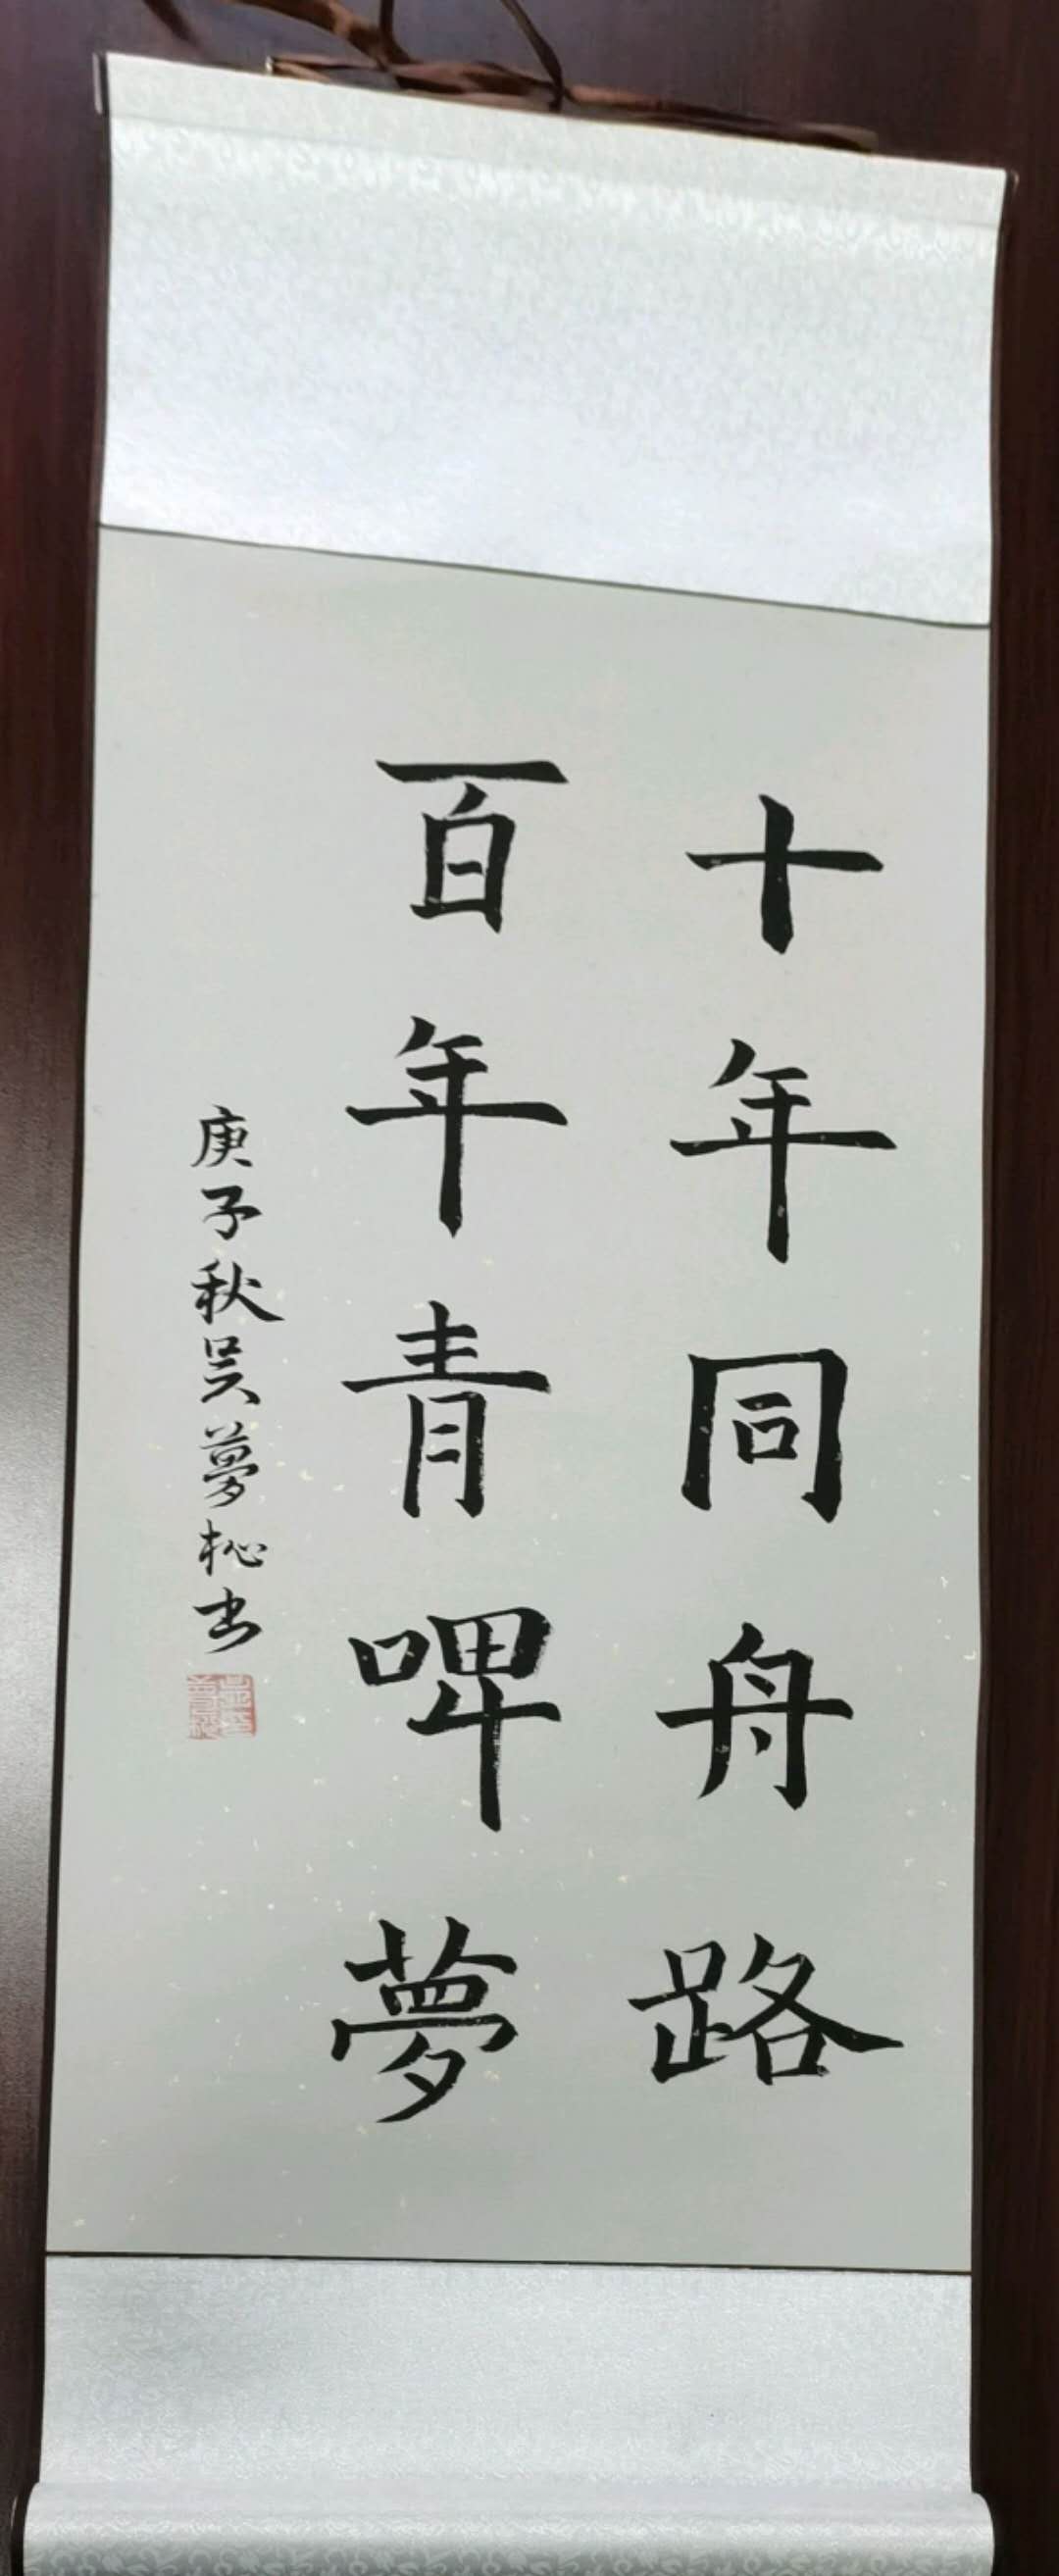 十年同舟路
百年青啤夢
庚子秋吴夢柲书